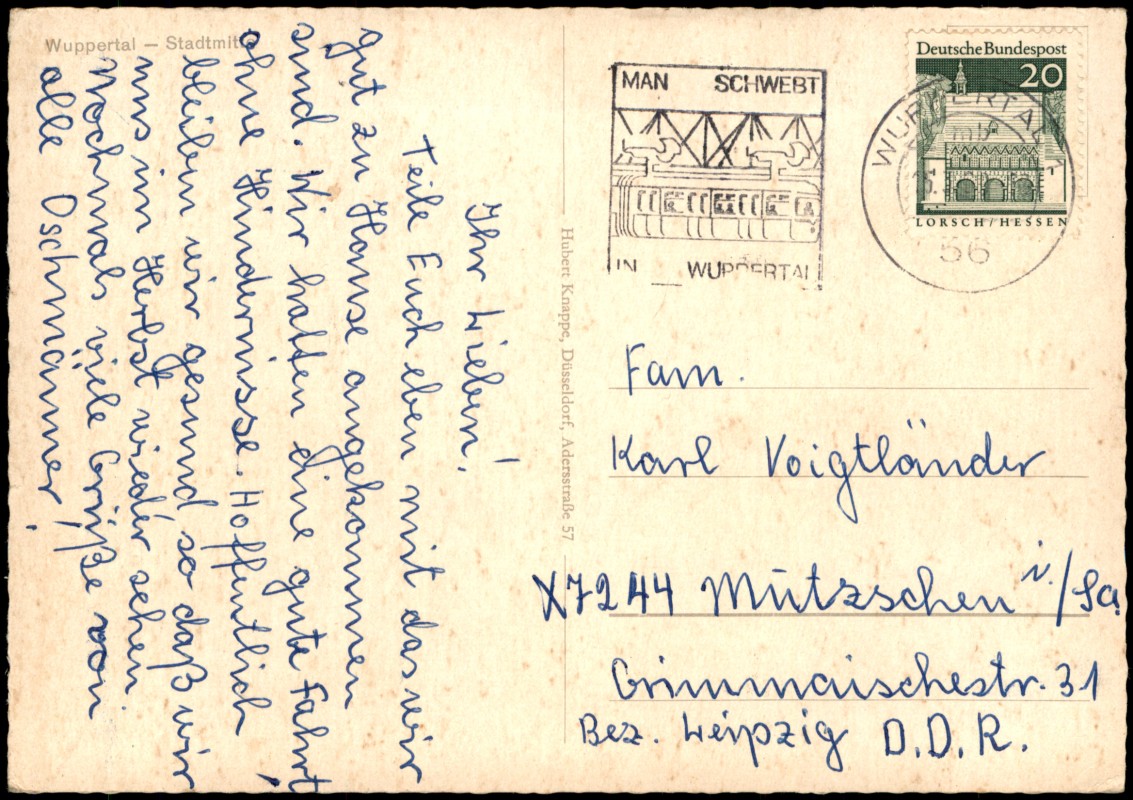 Wuppertal — Stadtmitte
Ihr Lieben!
Teile Euch eben mit das wir
gut zu Hause angekommen
sind. Wir hatten eine gute Fahrt
ohne Hindernisse. Hoffentlich
bleiben wir gesund so daß wir
uns im Herbst wieder sehen
Nochmals viele Grüße von
alle Oschmänner!
Hubert Knappe, Düsseldorf, Adersstraße 57
MAN SCHWEBT
IN WUPPERTAL
Deutsche Bundespost
20
LORSCH/HESSEN
WUPPERTAL
56
Fam.
Karl Voigtländer
X7244 Mutzschen i./Sa
Grimmaischestr. 31
Bez. Leipzig D.D.R.